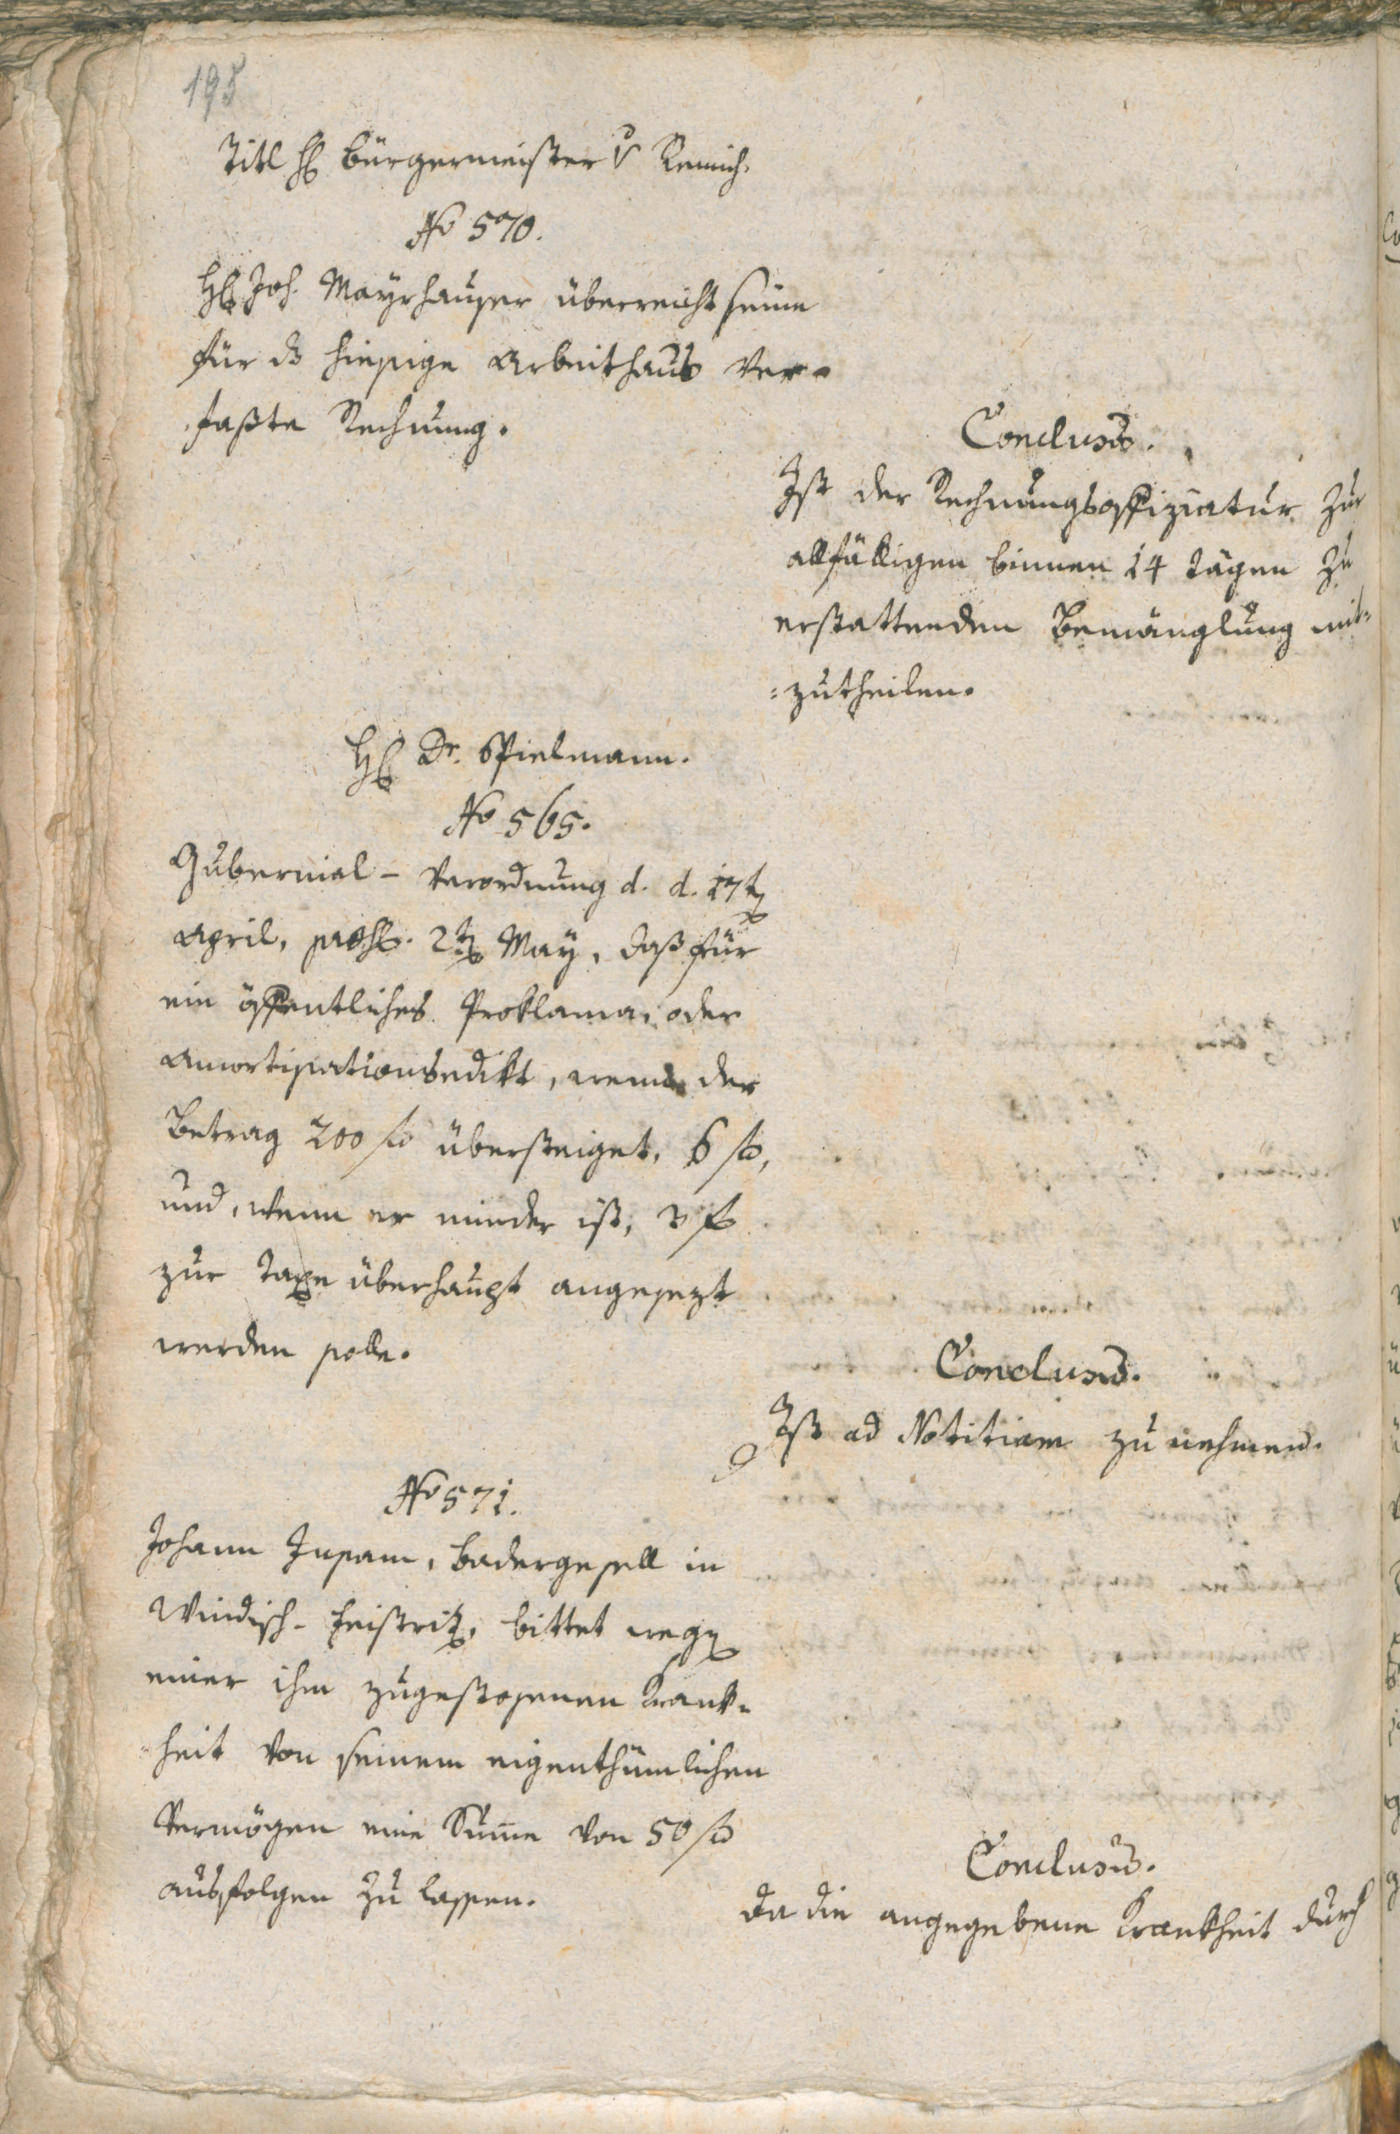 195
Titl H: Bürgermeister v Remich.
No 570.
H: Joh. Mayrhauser überreicht seine
für ds hiesige Arbeithaus ver-
faßte Rechnung.
Conclusũ.
Ist der Rechnungsoffiziatur zur
allfälligen binnen 14 Tägen zu
erstattenden Bemänglung mit-
=zutheilen.
H: Dr. Spielmann.
No 565.
Gubernial-Verordnung d. d. 17t
April, 2t May, daß für
ein öffentliches Proklama, oder
Amortisationsedikt, wenn der
Betrag 200 f übersteiget, 6 f,
und, wenn er minder ist, 3 f
zur Taxe überhaupt angesezt
werden solle.
Conclusũ.
Ist ad Notitiam zu nehmen.
No 571.
Johann Supam, Badergesell in
Windisch-Feistritz, bittet weg
einer ihm zugestossenen Krank-
heit von seinem eigenthümlichen
Vermögen eine Sum̄e von 50 f
ausfolgen zu lassen.
Conclusũ.
Da die angegebene Krankheit durch